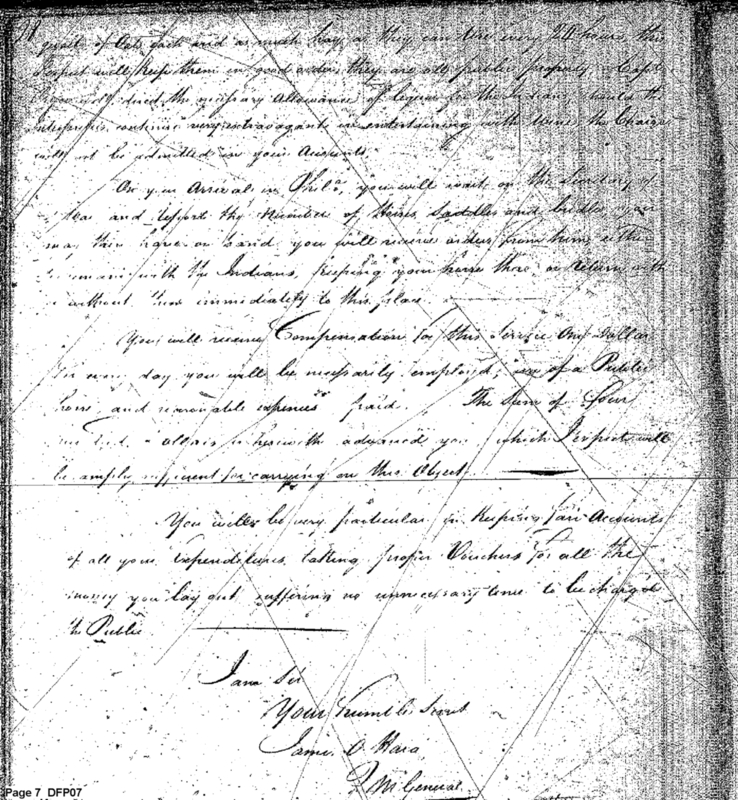 of Oats each and as much hay as they can Use every 24 hours, this
I expect will keep them in good order, they are all public property. Capt
will deed the necessary Allowance of liquor for the Indians, should the
Interpreter continue very extravagant in entertaining with wine, the Charge
will not be admitted in your Accounts.
On your Arrival in Phila. you will wait on the Secretary of
War and report the Number of Horses Saddles and bridles you
may then have on hand you will receive orders from him, either
to remain with the Indians, keeping your horses there, or return with
or without them immediately to this place.
You will receive Compensation for this Service One Dollar
for every day you will be necessarily employed, use of a Public
horse, and reasonable expences paid. The Sum of Four
hundred dollars is herewith advanced you, which I expect will
be amply sufficient for carrying on this Object.
You will be very particular in keeping fair Accounts
of all your Expenditures, taking proper Vouchers for all the
money you lay out, suffering no unnecessary to be charged
the Public
I am Sir
Your Humble Servt
James O Hara
Q M General.
Page 7 DFP07